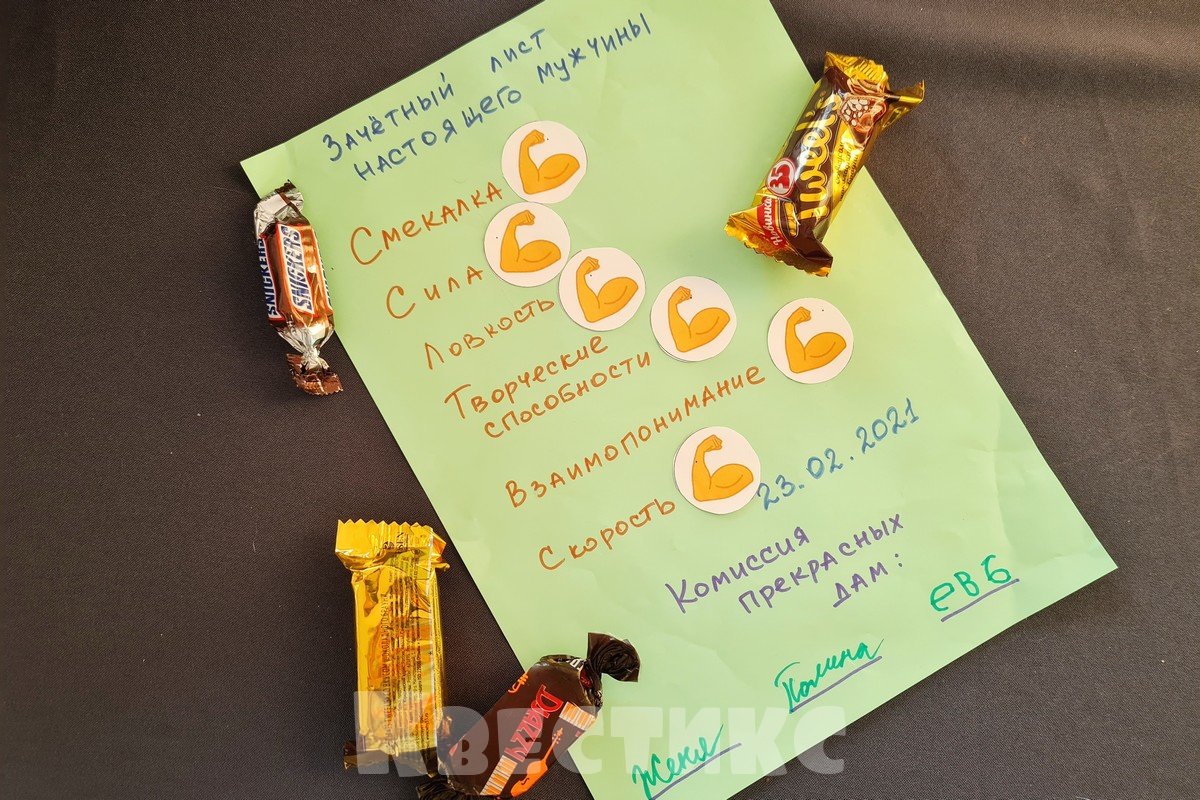 Зачётный лист
настоящего мужчины
Смекалка
Сила
Ловкость
Творческие
способности
Взаимопонимание
Скорость
23.02.2021
Комиссия
прекрасных
дам:
ЕВБ
Полина
Женя
SNICKERS
SNICKERS
Новинка
35
Джаззи
Квестикс